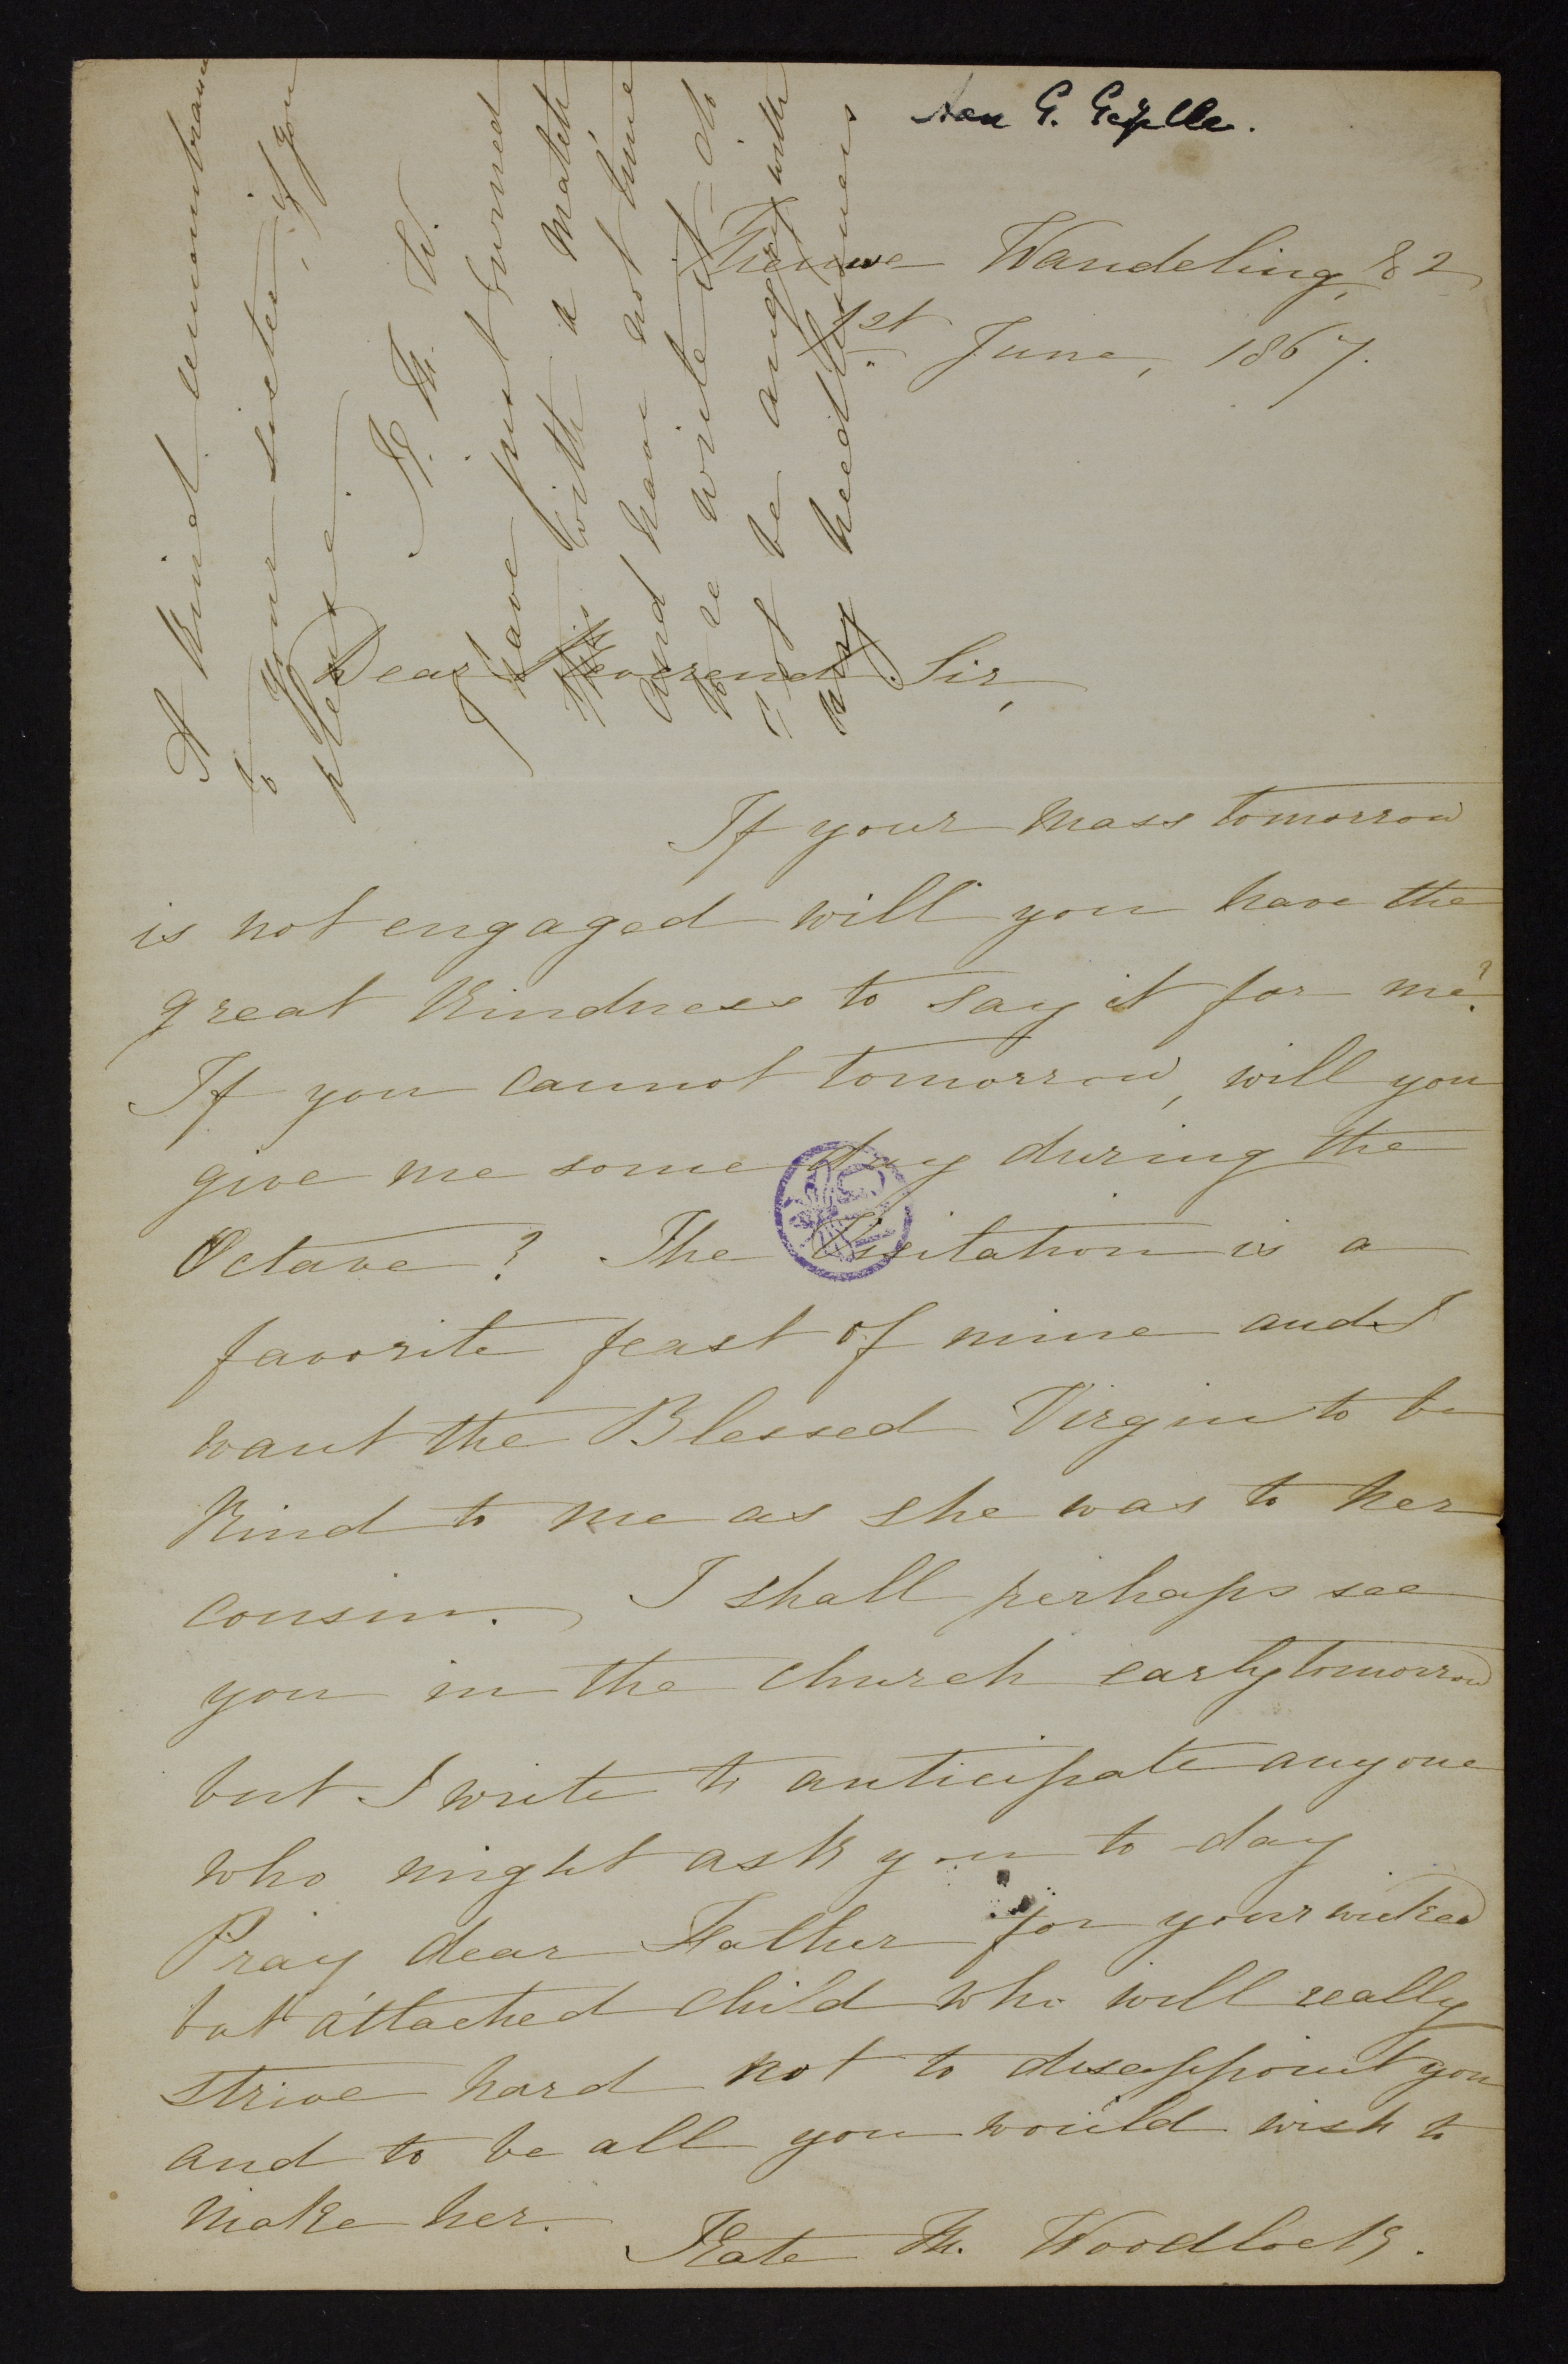 Aan G. Gezelle.
Nieuwe Wandeling, 82
1st June, 1867.
Dear Reverend Sir,
If your Mass tomorrow
is not engaged will you have the
great kindness to say it for me?
If you cannot tomorrow, will you
give me some day during the
Octave? The Visitation is a
favorite feast of mine and I
want the Blessed Virgin to be
kind to me as she was to her
cousin. I shall perhaps see
you in the church early tomorrow
but I write to anticipate anyone
who might ask you to-day
Pray dear Father for your wicked
but attached child who will really
strive hard not to disappoint you
and to be all you would wish to
make her.
Kate M. Woodlock.
A kind remembrance
to your sister, if you
please.
K. M. W.
I have just burned
this with a match
and have not time
to re write it - do
not be angry with
my heedlessness